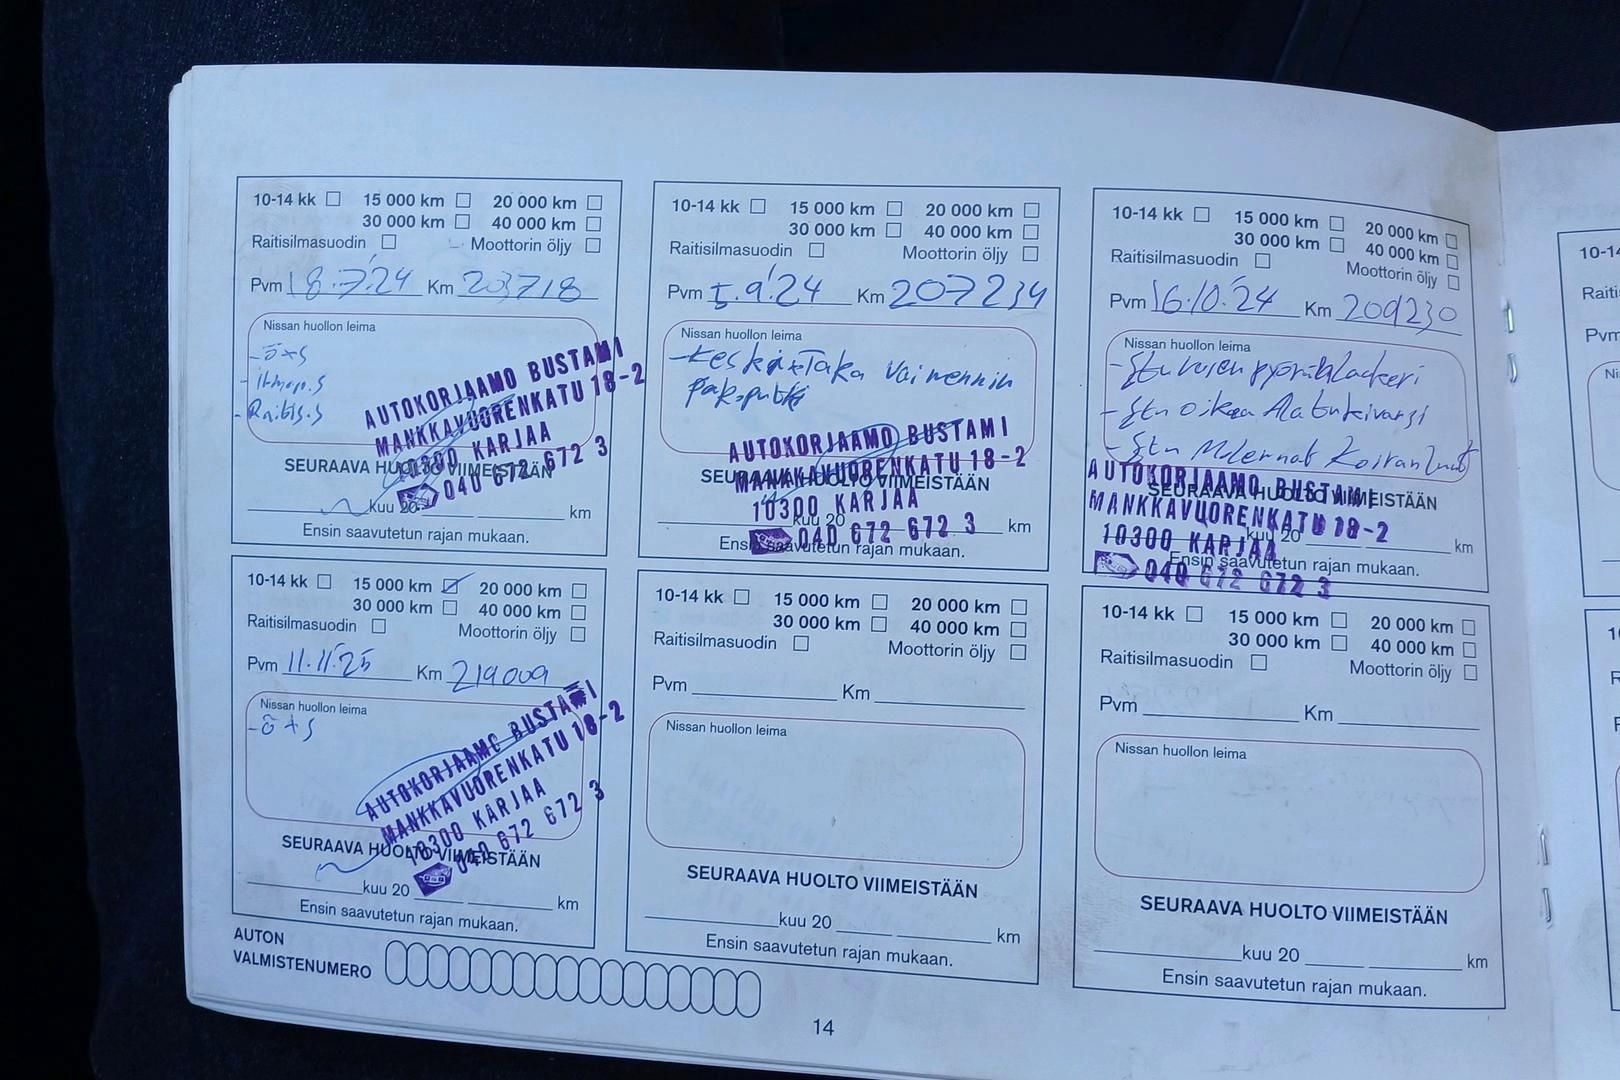 10-14 kk 15 000 km 20 000 km
30 000 km 40 000 km
Raitisilmasuodin Moottorin öljy
Pvm 18.7.'24 Km 203718
Nissan huollon leima
-ö+s
-ilmap.s
-Raitis.s
AUTOKORJAAMO BUSTAMI
MANKKAVUORENKATU 18-2
10300 KARJAA
040 672 672 3
SEURAAVA HUOLTO VIIMEISTÄÄN
kuu 20 km
Ensin saavutetun rajan mukaan.
10-14 kk 15 000 km 20 000 km
30 000 km 40 000 km
Raitisilmasuodin Moottorin öljy
Pvm 5.9.'24 Km 207234
Nissan huollon leima
-Keski+Taka Vaimennin
pakoputki
AUTOKORJAAMO BUSTAMI
MANKKAVUORENKATU 18-2
10300 KARJAA
040 672 672 3
SEURAAVA HUOLTO VIIMEISTÄÄN
kuu 20 km
Ensin saavutetun rajan mukaan.
10-14 kk 15 000 km 20 000 km
30 000 km 40 000 km
Raitisilmasuodin Moottorin öljy
Pvm 16.10.'24 Km 209230
Nissan huollon leima
-Etu vasen pyöränlaakeri
-Etu oikea Alatukivarsi
-Etu Molemmat Koiranluut
AUTOKORJAAMO BUSTAMI
MANKKAVUORENKATU 18-2
10300 KARJAA
040 672 672 3
SEURAAVA HUOLTO VIIMEISTÄÄN
kuu 20 km
Ensin saavutetun rajan mukaan.
10-14 kk 15 000 km 20 000 km
30 000 km 40 000 km
Raitisilmasuodin Moottorin öljy
Pvm 11.11.'25 Km 219009
Nissan huollon leima
-ö+s
AUTOKORJAAMO BUSTAMI
MANKKAVUORENKATU 18-2
10300 KARJAA
040 672 672 3
SEURAAVA HUOLTO VIIMEISTÄÄN
kuu 20 km
Ensin saavutetun rajan mukaan.
10-14 kk 15 000 km 20 000 km
30 000 km 40 000 km
Raitisilmasuodin Moottorin öljy
Pvm Km
Nissan huollon leima
SEURAAVA HUOLTO VIIMEISTÄÄN
kuu 20 km
Ensin saavutetun rajan mukaan.
10-14 kk 15 000 km 20 000 km
30 000 km 40 000 km
Raitisilmasuodin Moottorin öljy
Pvm Km
Nissan huollon leima
SEURAAVA HUOLTO VIIMEISTÄÄN
kuu 20 km
Ensin saavutetun rajan mukaan.
AUTON
VALMISTENUMERO
14